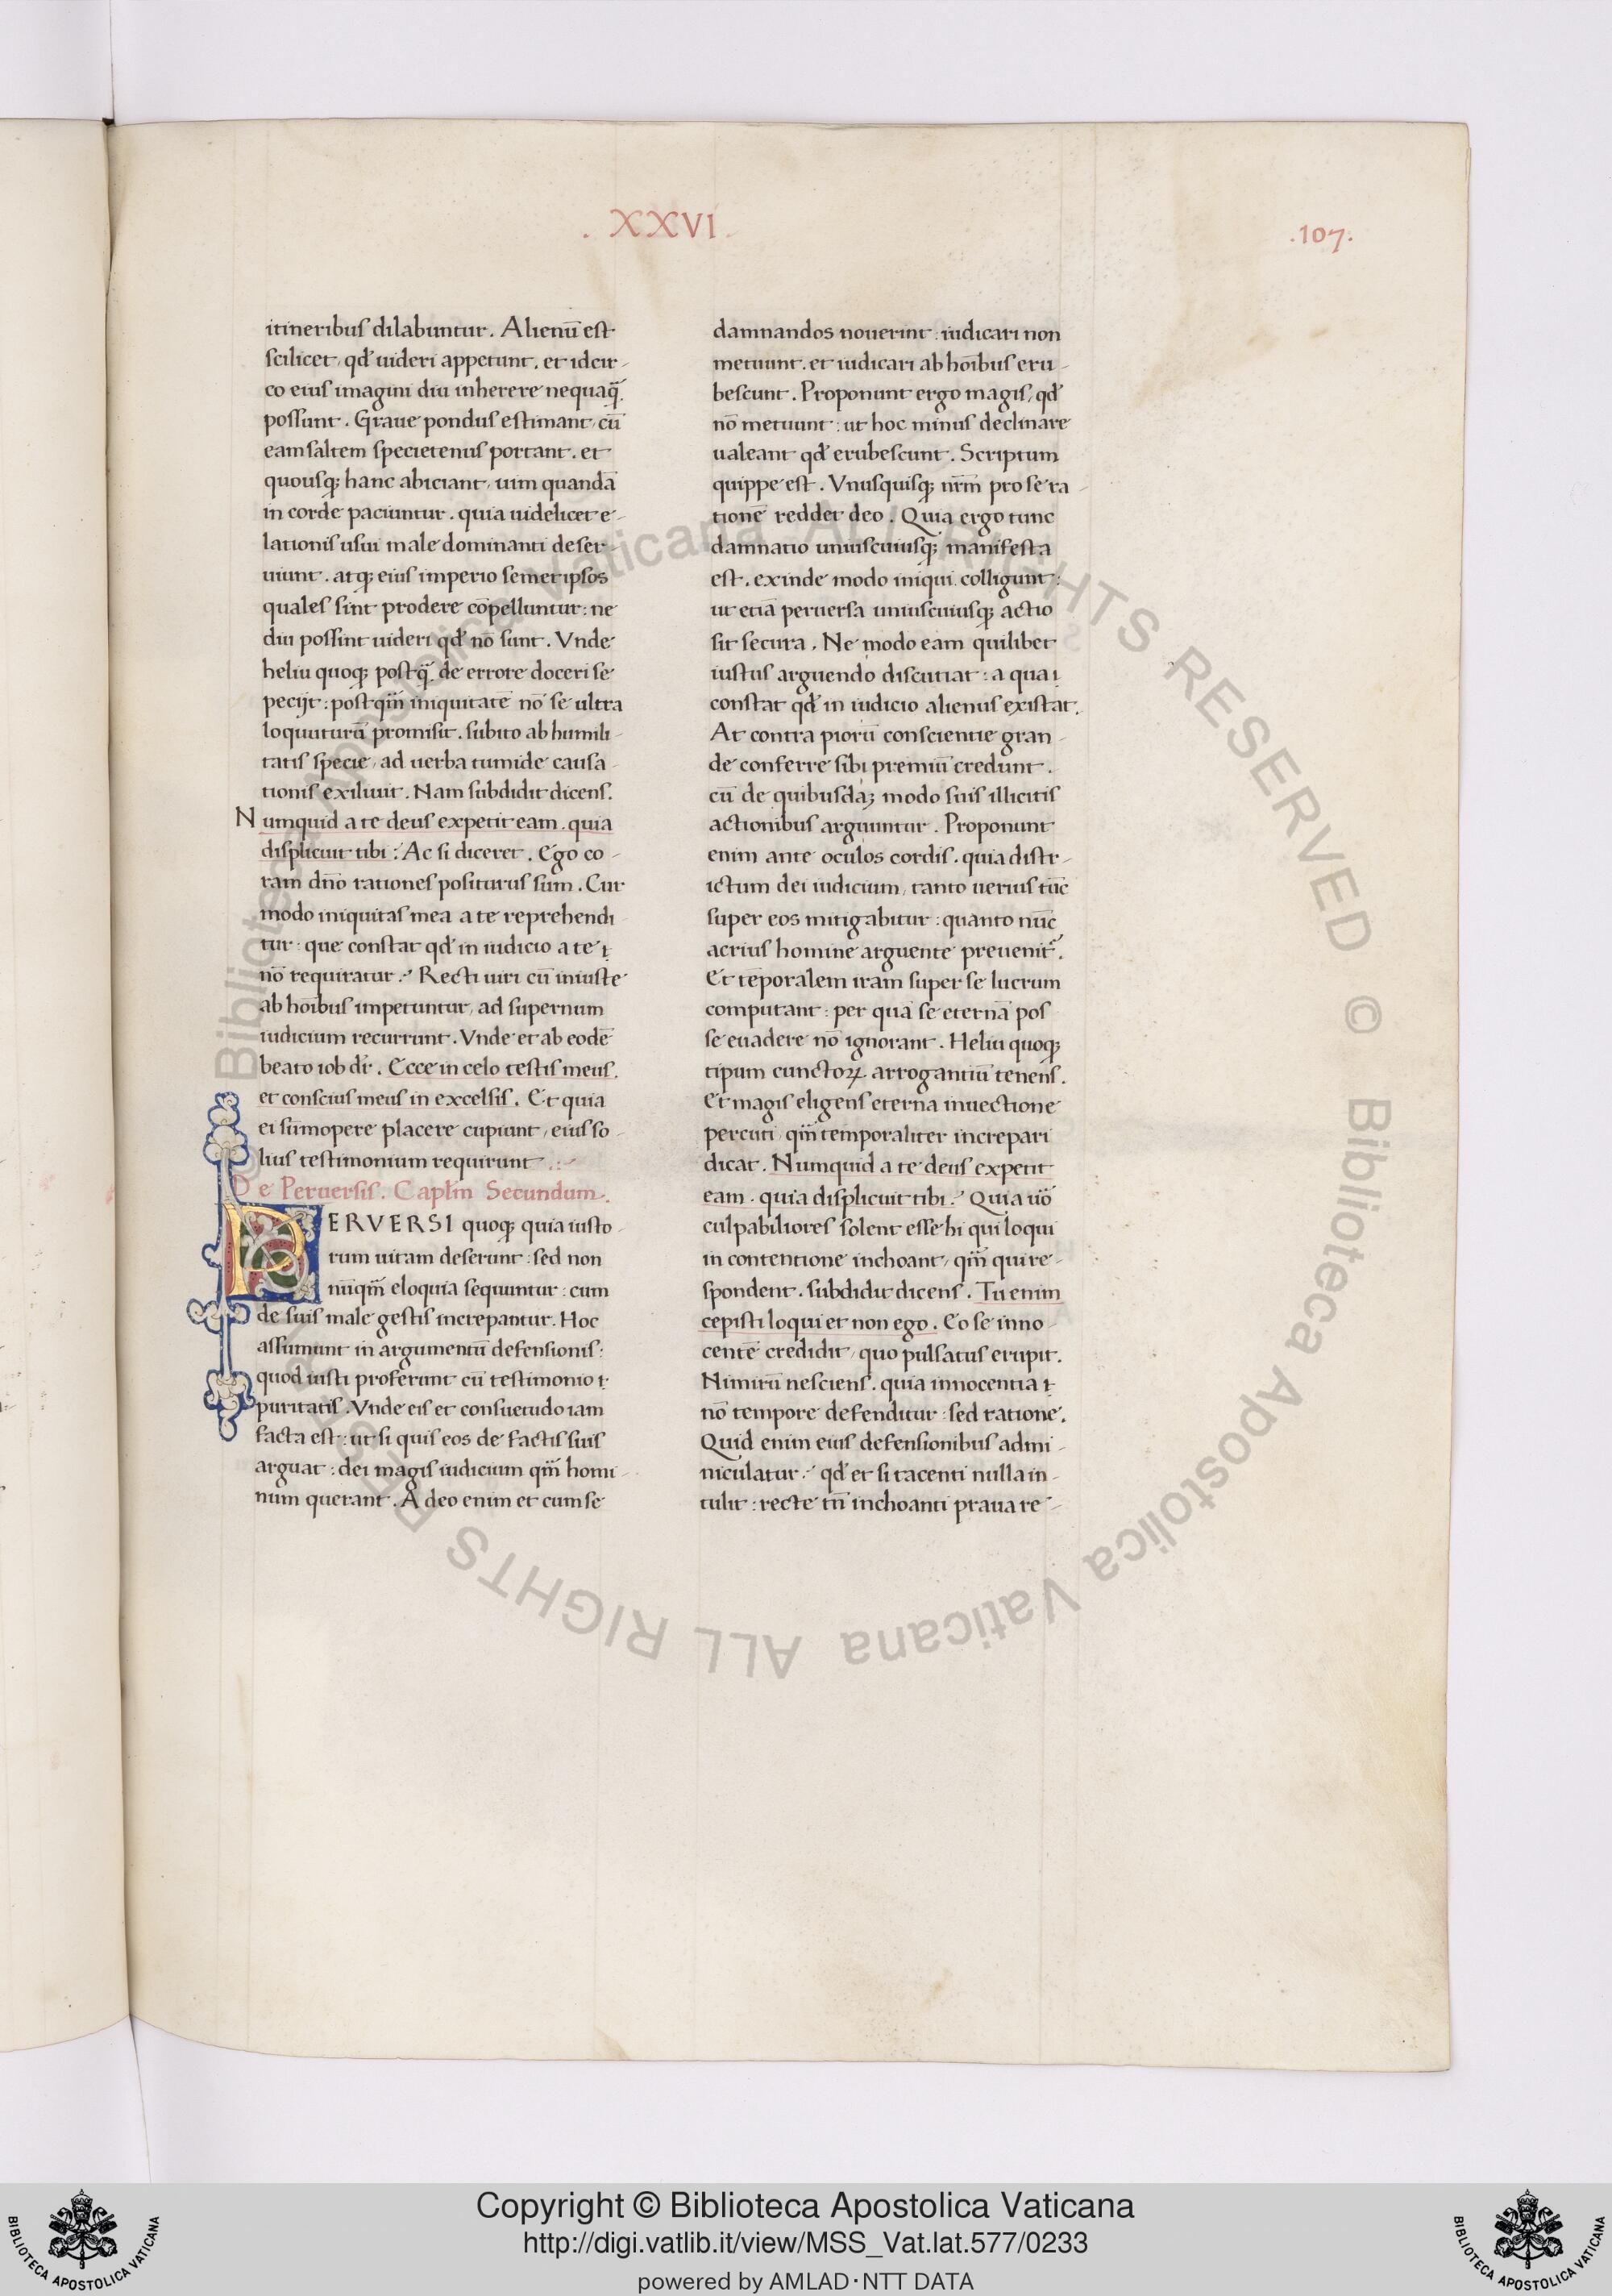 . XXVI .
.107.
itineribus dilabuntur. Alienū est
scilicet, qd' uideri appetunt. et idcir-
co eius imagini diu inherere nequaq̄.
possunt. Graue pondus estimant, cū
eam saltem specietenus portant. et
quousq; hanc abiciant, uim quandā
in corde paciuntur. quia uidelicet e-
lationis usui male dominanti deser-
uiunt. atq; eius imperio semetipsos
quales sint prodere cōpelluntur: ne
diu possint uideri qd' nō sunt. Vnde
heliu quoq; postq̄ de errore doceri se
pecijt: postqm̄ iniquitatē nō se ultra
loquuturū promisit. subito ab humili-
tatis specie, ad uerba tumide causa-
tionis exiliuit. Nam subdidit dicens.
Numquid a te deus expetit eam. quia
displicuit tibi: Ac si diceret. Ego co-
ram dn̄o rationes positurus sum. Cur
modo iniquitas mea a te reprehendi
tur: que constat qd' in iudicio a te ı
nō requiratur. Recti uiri cū iniuste
ab hoībus impetuntur, ad supernum
iudicium recurrunt. Vnde et ab eodē
beato iob dr̄. Ecce in celo testis meus.
et conscius meus in excelsis. Et quia
ei sūmopere placere cupiunt, eius so-
lius testimonium requirunt
De Peruersis. Caplm̄ Secundum.
PERVERSI quoq; quia iusto-
rum uitam deserunt: sed non
nūqm̄ eloquia sequuntur: cum
de suis male gestis increpantur. Hoc
assumunt in argumentū defensionis:
quod iusti proferunt cū testimonio ı
puritatis. Vnde eis et consuetudo iam
facta est: ut si quis eos de factis suis
arguat: dei magis iudicium qm̄ homi-
num querant. A deo enim et cum se
damnandos nouerint: iudicari non
metuunt. et iudicari ab hoībus eru-
bescunt. Proponunt ergo magis, qd'
nō metuunt: ut hoc minus declinare
ualeant qd' erubescunt. Scriptum
quippe est. Vnusquisq; nr̄m pro se ra-
tionē reddet deo. Quia ergo tunc
damnatio uniuscuiusq; manifesta
est. exinde modo iniqui colligunt:
ut etiā peruersa uniuscuiusq; actio
sit secura. Ne modo eam quilibet
iustus arguendo discutiat: a qua ı
constat qd' in iudicio alienus existat.
At contra piorū conscientie gran-
de conferre sibi premiū credunt.
cū de quibusdaȝ modo suis illicitis
actionibus arguuntur. Proponunt
enim ante oculos cordis. quia distr-
ictum dei iudicium, tanto uerius tūc
super eos mitigabitur: quanto nūc
acrius homine arguente preuenit᷑.
Et tēporalem iram super se lucrum
computant: per quā se eternā pos
se euadere nō ignorant. Heliu quoq;
tipum cunctoꝝ arrogantiū tenens.
Et magis eligens eterna inuectione
percuti, qm̄ temporaliter increpari
dicat. Numquid a te deus expetit
eam. quia displicuit tibi. Quia uō
culpabiliores solent esse hi qui loqui
in contentione inchoant, qm̄ qui re-
spondent. subdidit dicens. Tu enim
cepisti loqui et non ego. Eo se inno-
centē credidit, quo pulsatus erupit.
Nimirū nesciens. quia innocentia ı
nō tempore defenditur: sed ratione.
Quid enim eius defensionibus admi-
niculatur. qd' et si tacenti nulla in-
tulit: recte tn̄ inchoanti praua re-
© Biblioteca Apostolica Vaticana ALL RIGHTS RESERVED © Biblioteca Apostolica Vaticana ALL RIGHTS RESERVED
Copyright © Biblioteca Apostolica Vaticana
http://digi.vatlib.it/view/MSS_Vat.lat.577/0233
powered by AMLAD·NTT DATA
BIBLIOTECA APOSTOLICA VATICANA
BIBLIOTECA APOSTOLICA VATICANA